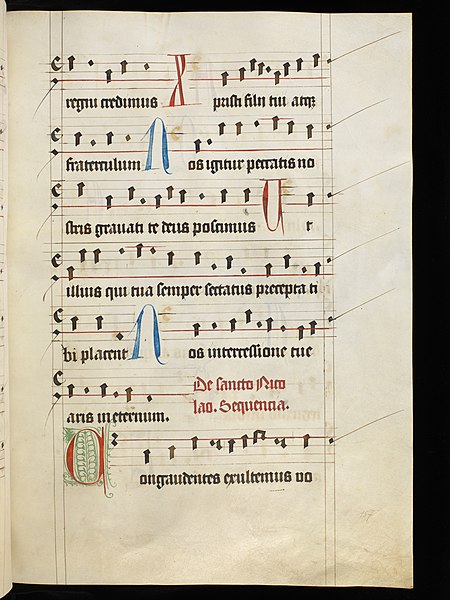 regnu credimus Xpristi filii tui atq3
fraterculum Nos igitur peccatis no
stris gravati te deus poscimus Ut
illius qui tua semper sectatus precepta ti
bi placent Nos intercessione tue
aris in eternum. De sancto Nico
lao. Sequencia.
Congaudentes exultemus vo
157